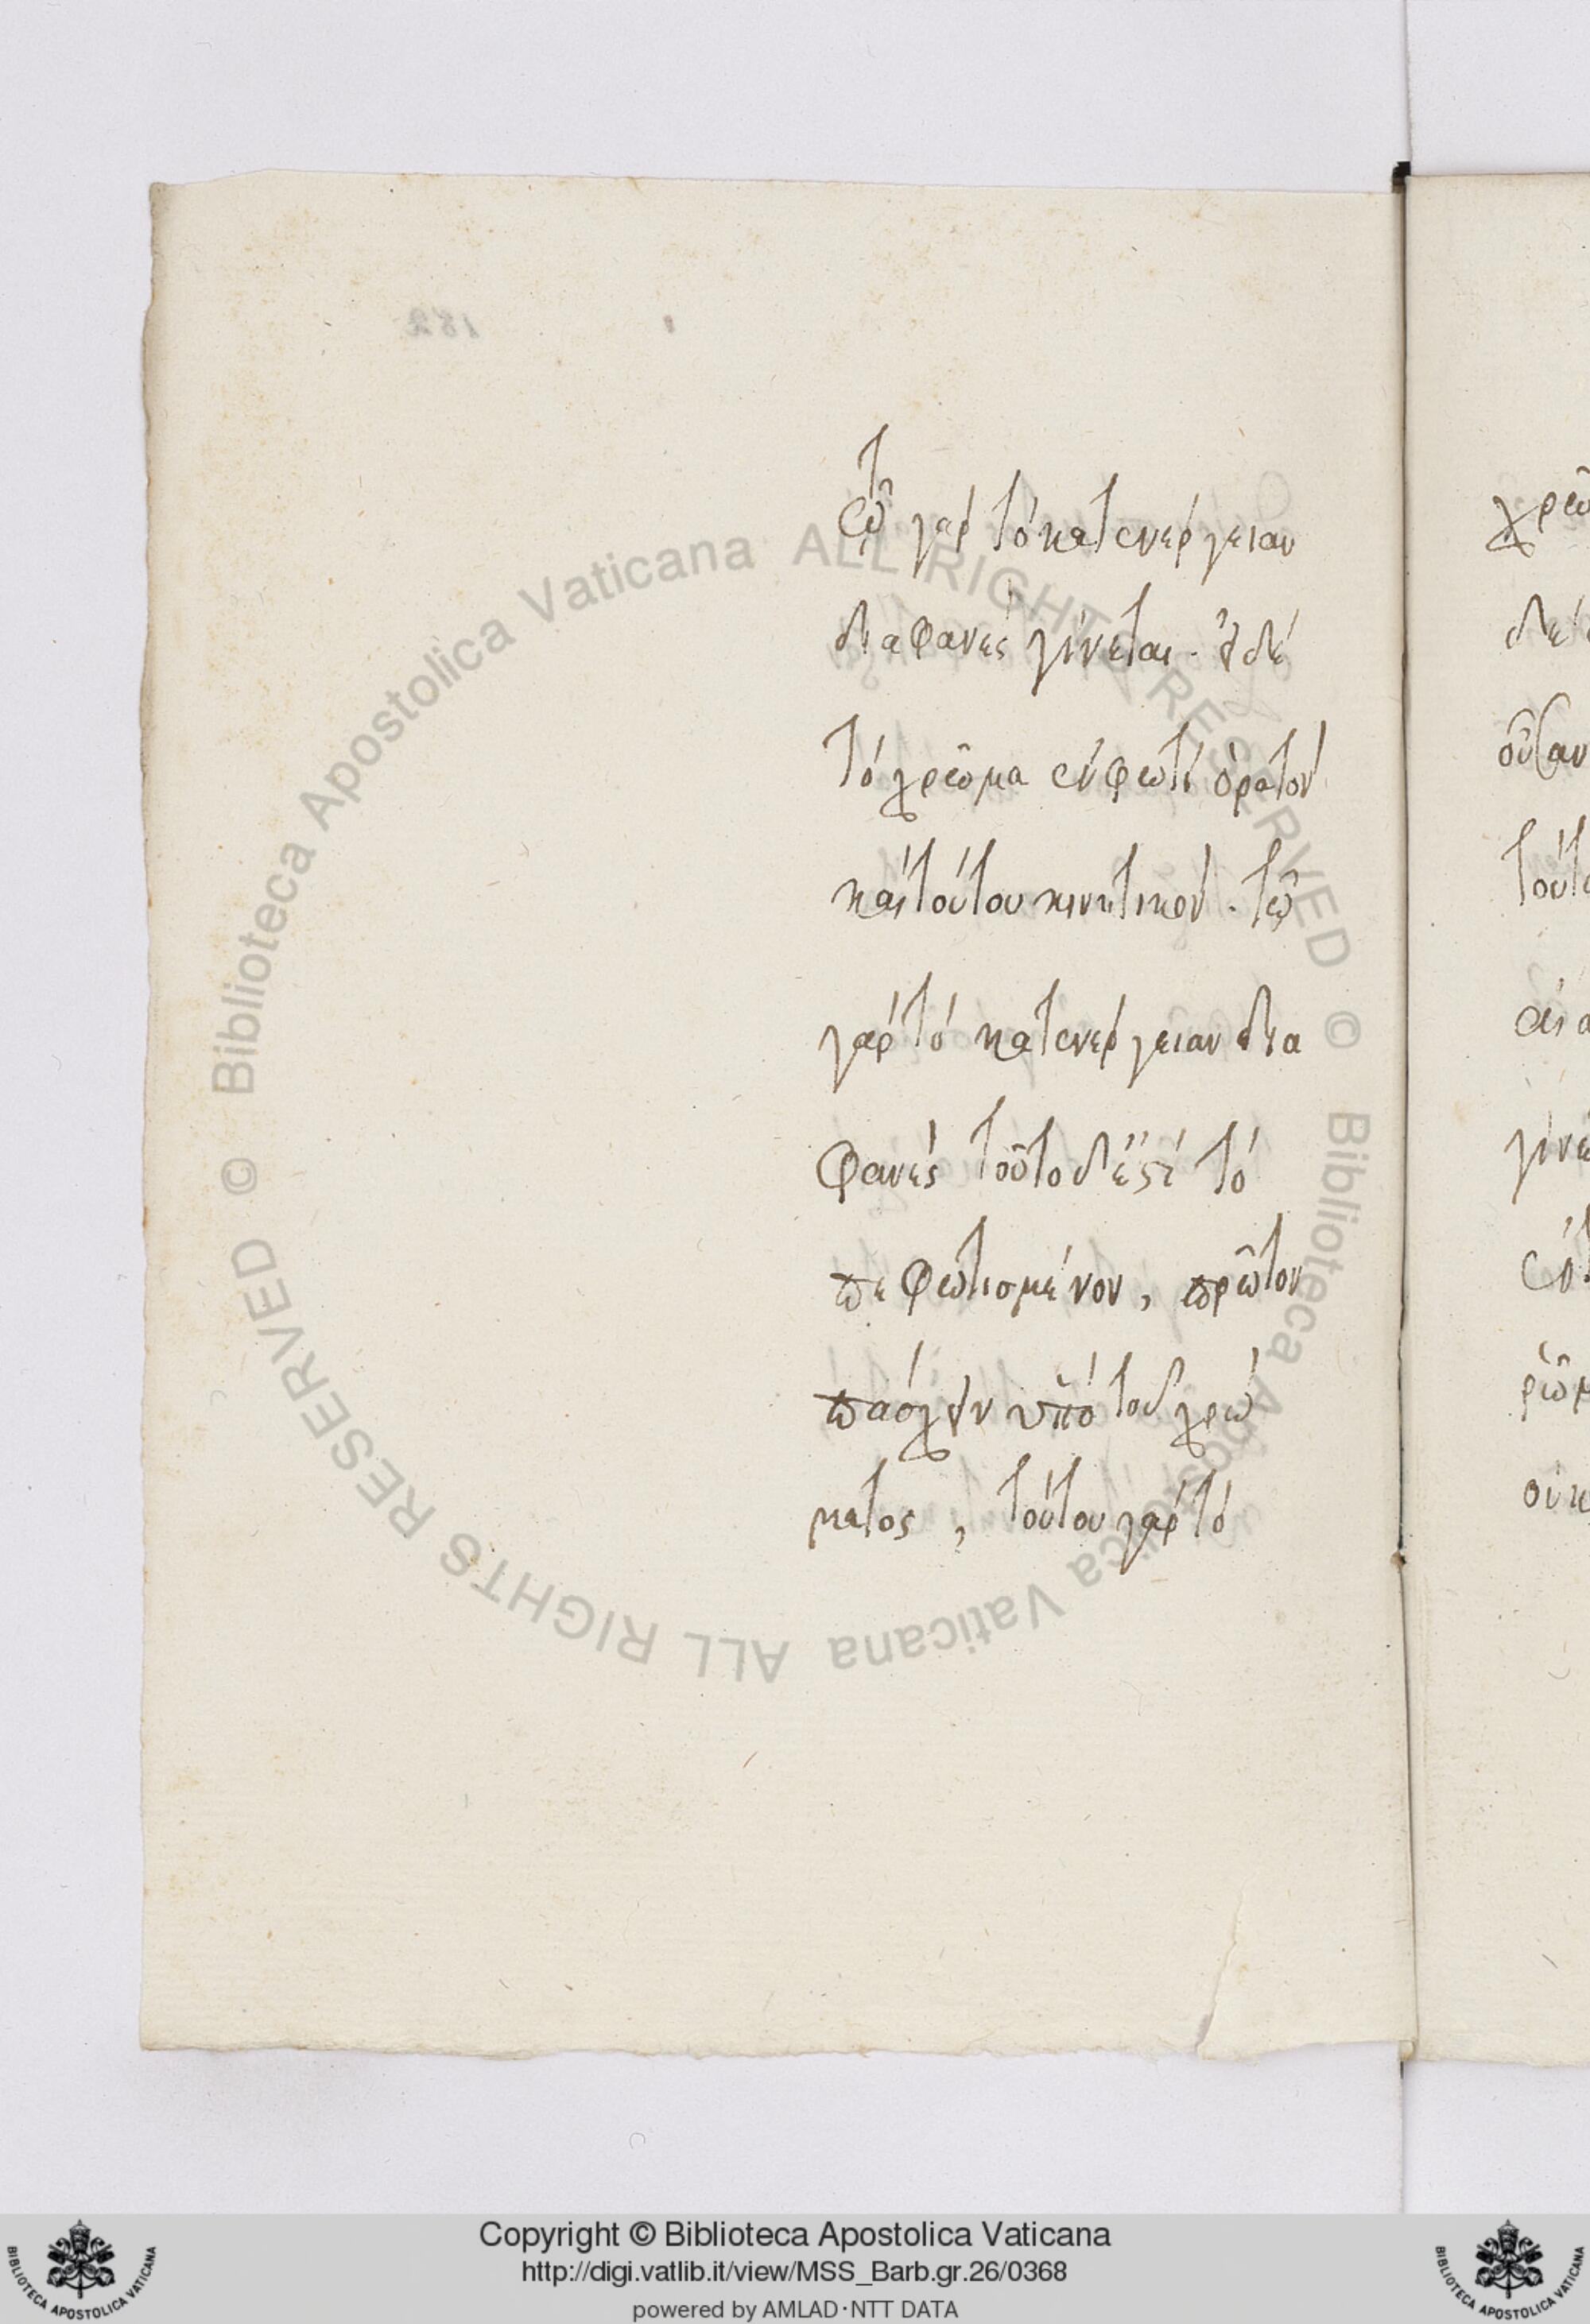 τῶ γὰρ τὸ κατ ενέργειαν
διαφανὲς γίνεται. ει δὲ
τὸ χρῶμα ἐν φωτὶ ὁρατὸν
καὶ τούτου κινητικὸν. τῶ
γὰρ τὸ κατ ενέργειαν δια
φανὲς τοῦτο δ' ἐστὶ τὸ
πεφωτισμένον, πρῶτον
πάσχειν ὑπὸ τοῦ χρώ
ματος, τούτου γὰρ τὸ
χρῶ
δὲ
οῦσαν
γίνε
182
© Biblioteca Apostolica Vaticana ALL RIGHTS RESERVED © Biblioteca Apostolica Vaticana ALL RIGHTS RESERVED
Copyright © Biblioteca Apostolica Vaticana
http://digi.vatlib.it/view/MSS_Barb.gr.26/0368
powered by AMLAD·NTT DATA
BIBLIOTECA APOSTOLICA VATICANA
BIBLIOTECA APOSTOLICA VATICANA